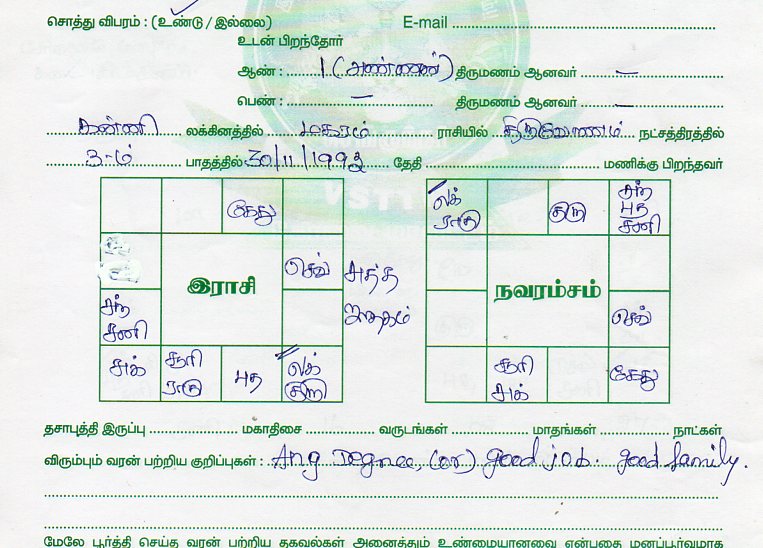 சொத்து விபரம் : (உண்டு / இல்லை) E-mail
உடன் பிறந்தோர்
ஆண் : 1 (அண்ணன்) திருமணம் ஆனவர் —
பெண் : — திருமணம் ஆனவர் —
கன்னி லக்கினத்தில் மகரம் ராசியில் திருவோணம் நட்சத்திரத்தில்
3-ம் பாதத்தில் 30/11/1992 தேதி மணிக்கு பிறந்தவர்
கேது
செவ்
இராசி
சந்
சனி
சுக்
சூரி
ராகு
புத
லக்
குரு
சுத்த
ஜாதகம்
லக்
ராகு
குரு
சந்
புத
சனி
நவரம்சம்
செவ்
சூரி
சுக்
கேது
தசாபுத்தி இருப்பு மகாதிசை வருடங்கள் மாதங்கள் நாட்கள்
விரும்பும் வரன் பற்றிய குறிப்புகள் : Any Degree, (or) good job. good family.
மேலே பூர்த்தி செய்த வரன் பற்றிய தகவல்கள் அனைத்தும் உண்மையானவை என்பதை மனப்பூர்வமாக